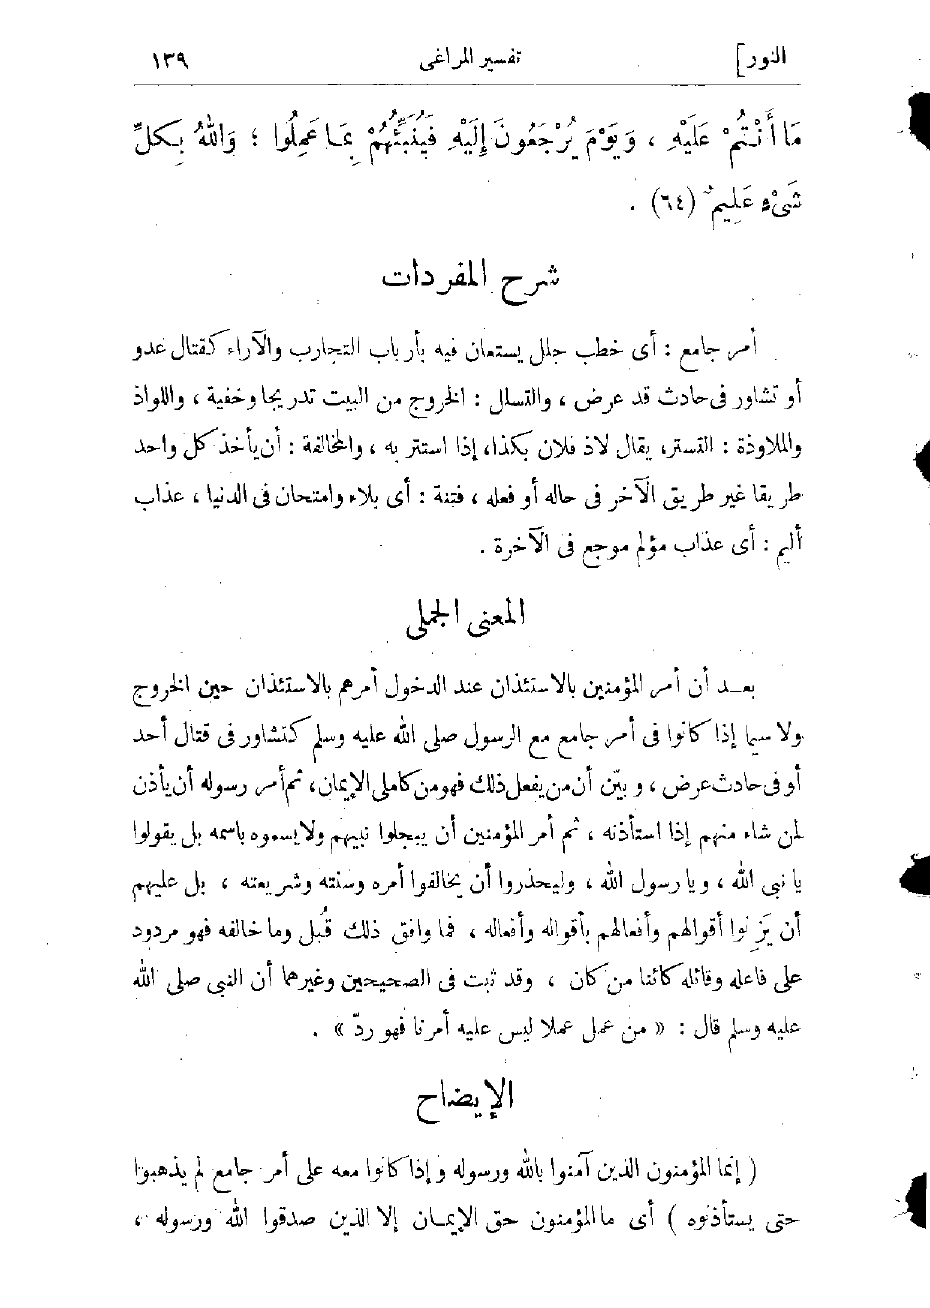 النور] تفسير المراغى ١٣٩
مَا أَنْتُمْ عَلَيْهِ ، وَيَوْمَ يُرْجَعُونَ إِلَيْهِ فَيُنَبِّئُهُمْ بِمَا عَمِلُوا ؛ وَاللهُ بِكلِّ
شَىْءٍ عَلِيمٌ (٦٤) .
شرح المفردات
أمر جامع : أى خطب جلل يستعان فيه بأرباب التجارب والآراء كقتال عدو
أو تشاور فى حادث قد عرض ، والتسلل : الخروج من البيت تدريجا وخفية ، واللواذ
والملاوذة : التستر، يقال لاذ فلان بكذا، إذا استتر به ، والمخالفة : أن يأخذ كل واحد
طريقا غير طريق الآخر فى حاله أو فعله ، فتنة : أى بلاء وامتحان فى الدنيا ، عذاب
أليم : أى عذاب مؤلم موجع فى الآخرة .
المعنى الجملى
بعد أن أمر المؤمنين بالاستئذان عند الدخول أمرهم بالاستئذان حين الخروج
ولا سيما إذا كانوا فى أمر جامع مع الرسول صلى الله عليه وسلم كتشاور فى قتال أحد
أو فى حادث عرض ، وبيّن أن من يفعل ذلك فهو من كاملى الإيمان، ثم أمر رسوله أن يأذن
لمن شاء منهم إذا استأذنه ، ثم أمر المؤمنين أن يبجلوا نبيهم ولا يسموه باسمه بل يقولوا
يا نبى الله ، ويا رسول الله ، وليحذروا أن يخالفوا أمره وسنته وشريعته ، بل عليهم
أن يَزِنوا أقوالهم وأفعالهم بأقواله وأفعاله ، فما وافق ذلك قُبل وما خالفه فهو مردود
على فاعله وقائله كائنا من كان ، وقد ثبت فى الصحيحين وغيرهما أن النبى صلى الله
عليه وسلم قال : « من عمل عملا ليس عليه أمرنا فهو ردّ » .
الإيضاح
( إنما المؤمنون الذين آمنوا بالله ورسوله وإذا كانوا معه على أمر جامع لم يذهبوا
حتى يستأذنوه ) أى ما المؤمنون حق الإيمان إلا الذين صدقوا الله ورسوله ،